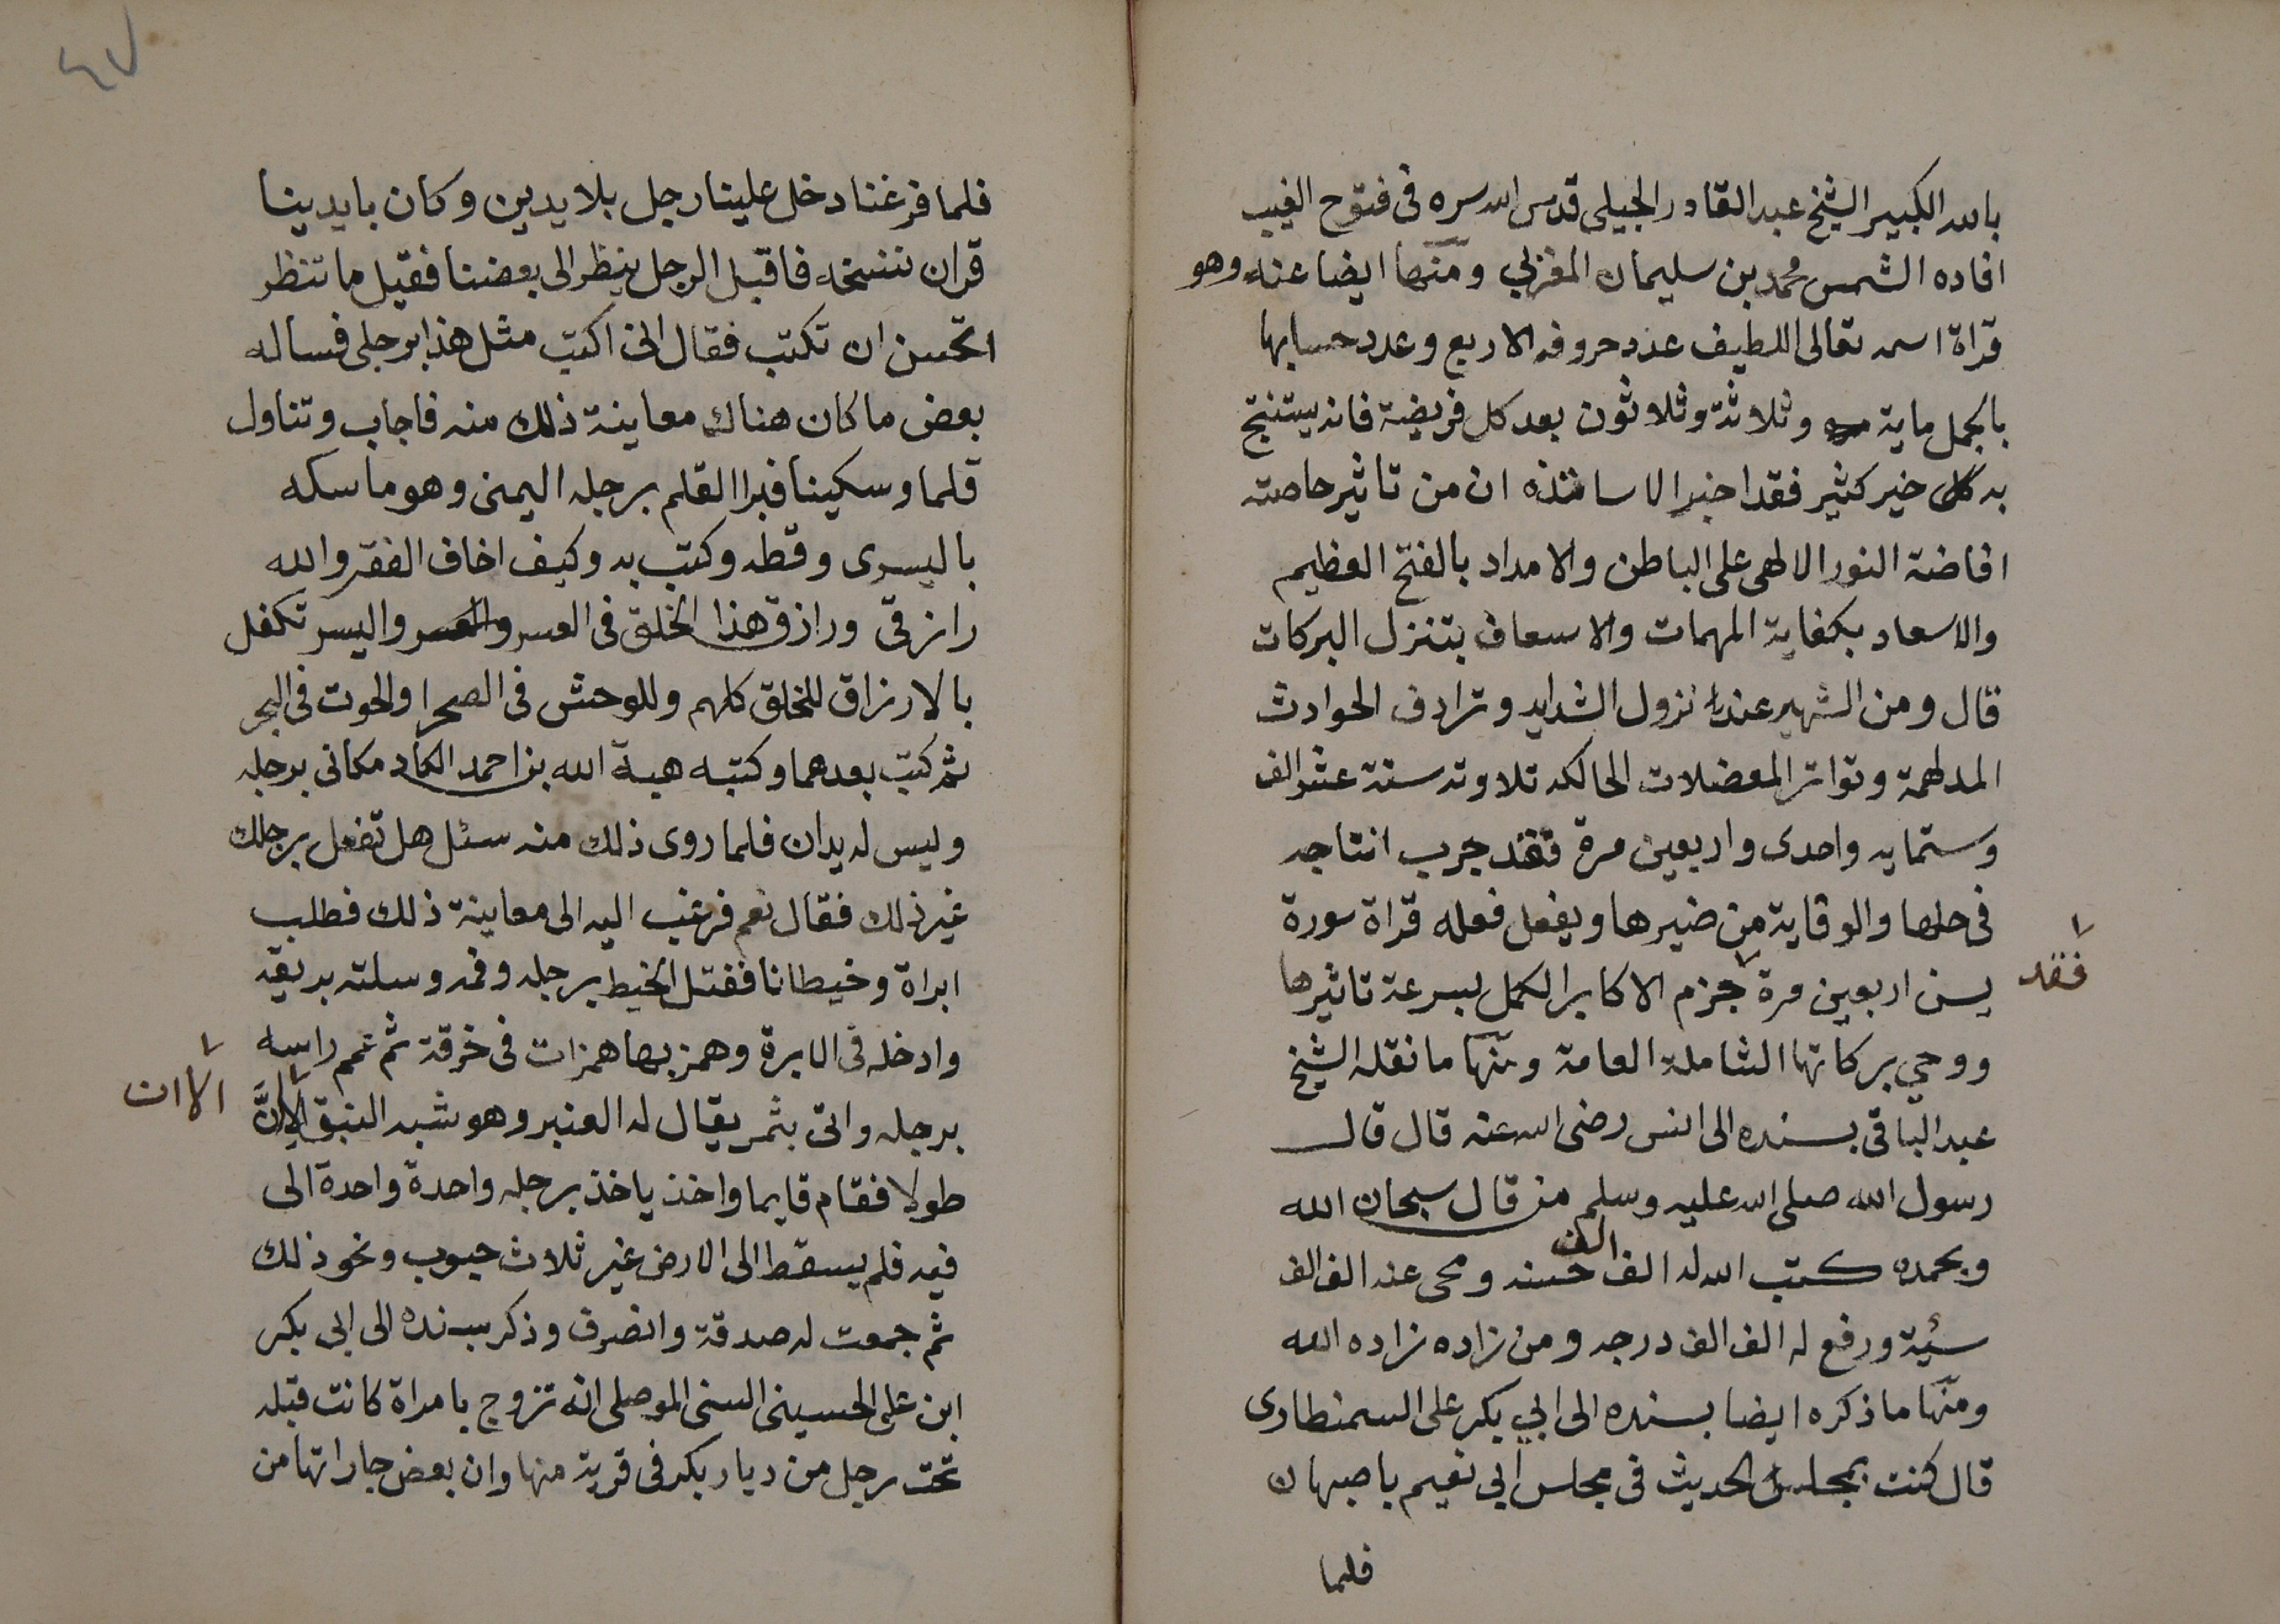 بالله الكبير الشيخ عبد القادر الجيلى قدس الله سره فى فتوح الغيب
افاده الشمس محمد بن سليمان المغربي ومنها ايضا عنه وهو
قراة اسمه تعالى اللطيف عدد حروفه الاربع وعدد حسابها
بالجمل ماية وثلاثة وثلاثون بعد كل فريضة فانه يستنتج
به كل خير كثير فقد اخبر الاساتذه ان من تاثير خاصته
افاضة النور الالهى على الباطن والامداد بالفتح العظيم
والاسعاد بكفاية المهمات والاسعاف بتنزل البركات
قال ومن الشهير عند نزول الشدايد وترادف الحوادث
المدلهمة وتواتر المعضلات الحالكه تلاوته ستة عشر الف
وستمايه واحدى واربعين مرة فقد جرب انتاجه
فى حلها والوقاية من ضيرها ويفعل فعله قراة سورة
يسن اربعين مرة جزم الاكابر الكمل بسرعة تاثيرها
فقد
ووحي بركاتها الشاملة العامة ومنها ما نقله الشيخ
عبد الباقى بسنده الى انس رضى الله عنه قال قال
رسول الله صلى الله عليه وسلم من قال سبحان الله
وبحمده كتب الله له الف الف حسنه ومحى عنه الف الف
سئية ورفع له الف الف درجه ومن زاده زاده الله
ومنها ما ذكره ايضا بسنده الى ابي بكر على السمنطارى
قال كنت بمجلس الحديث فى مجلس ابي نعيم باصبهان
فلما
٤٧
فلما فرغنا دخل علينا رجل بلا يدين وكان بايدينا
قران ننسخه فاقبل الرجل ينظر الى بعضنا فقيل ما تنظر
اتحسن ان تكتب فقال انى اكتب مثل هذا برجلى فساله
بعض ما كان هناك معاينة ذلك منه فاجاب وتناول
قلما وسكينا فبرا القلم برجله اليمنى وهو ماسكه
باليسرى وقطه وكتب به وكيف اخاف الفقر والله
رازقى ورازق هذا الخلق فى العسر والعسر واليسر تكفل
بالارزاق للخلق كلهم وللوحش فى الصحرا والحوت فى البحر
ثم كتب بعدهما وكتبه هبة الله بن احمد الكاد مكانى برجله
وليس له يدان فلما روى ذلك منه سئل هل تفعل برجلك
غير ذلك فقال نعم فرغب اليه الى معاينة ذلك فطلب
ابراة وخيطانا ففتل الخيط برجله وفمه وسلته بريقه
وادخله فى الابرة وهمز بها همزات فى خرقة ثم عمم راسه
برجله واتى بثمر يقال له العنبر وهو شبه النبق الا انَّ
الا ان
طولا فقام قايما واخذ ياخذ برجله واحدة واحدة الى
فيه فلم يسقط الى الارض غير ثلاث حبوب ونحو ذلك
ثم جمعت له صدقة وانصرف وذكر بسنده الى ابى بكر
ابن على الحسينى السنى الموصلى انه تزوج بامراة كانت قبله
تحت رجل من ديار بكر فى قرية منها وان بعض جاراتها من